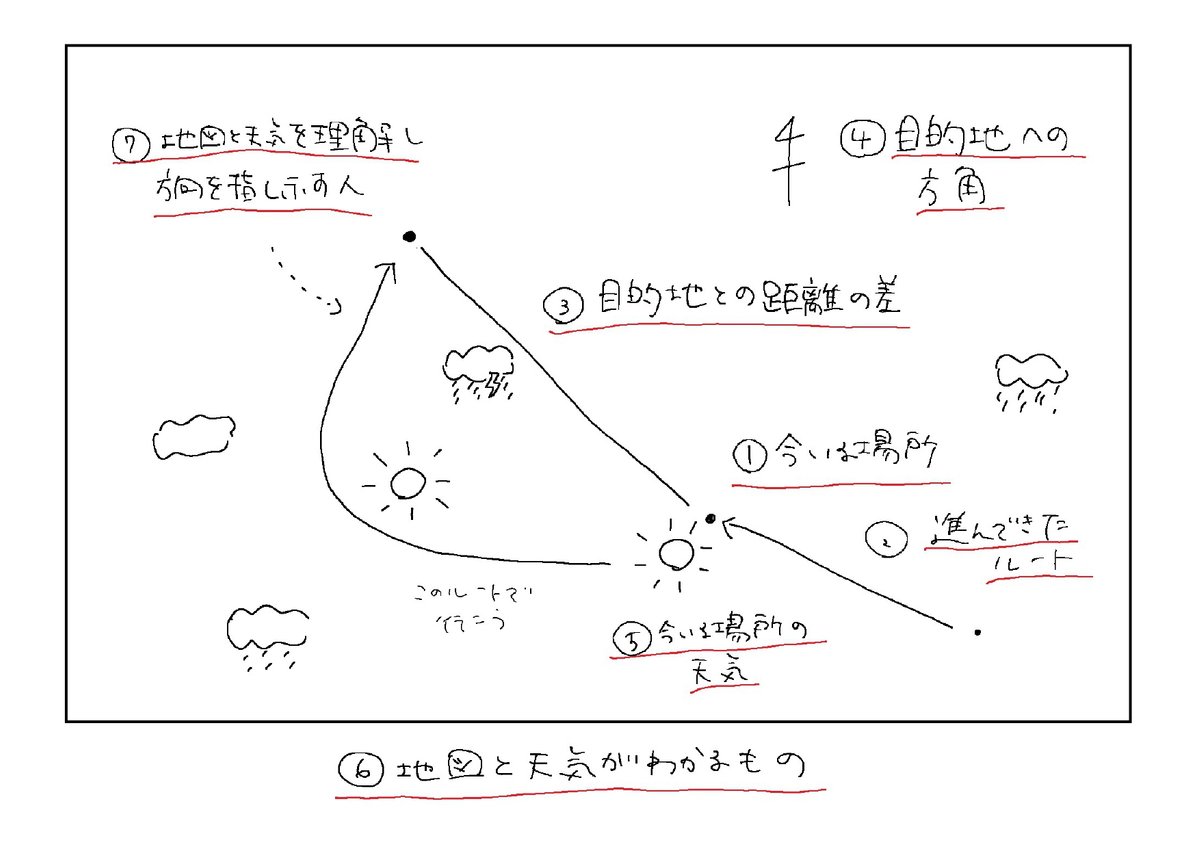 ⑦ 地図と天気を理解し
方向を指し示す人
④ 目的地への
方角
③ 目的地との距離の差
① 今いる場所
② 進んできた
ルート
このルートで
行こう
⑤ 今いる場所の
天気
⑥ 地図と天気がわかるもの